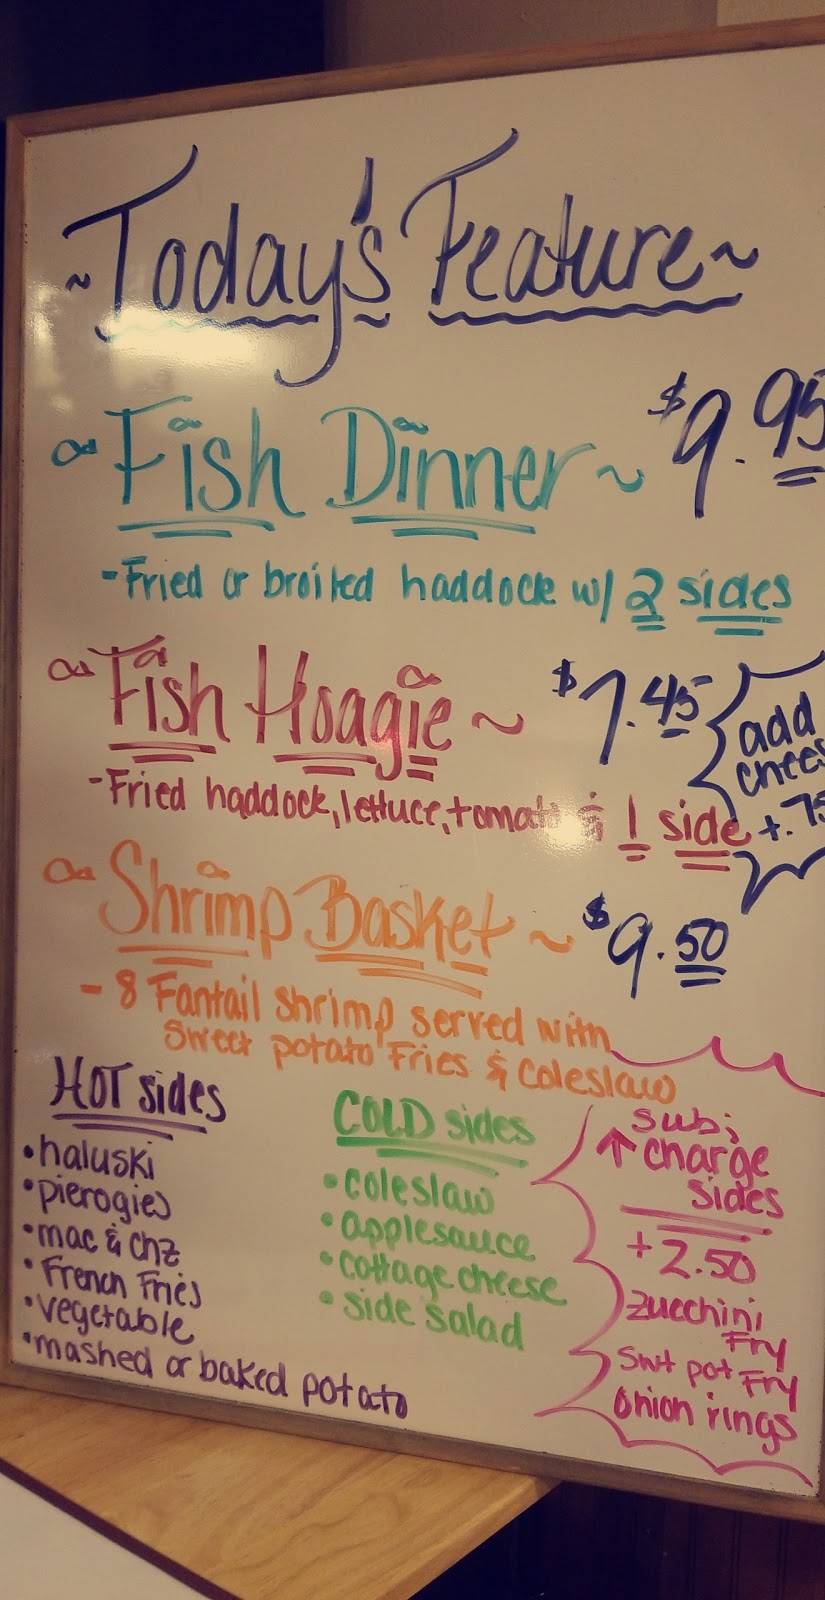 ~Today's Feature~
~Fish Dinner~ $9.95
-Fried or broiled haddock w/ 2 sides
~Fish Hoagie~ $7.45
add
chees
+.75
-Fried haddock, lettuce, tomato & 1 side
~Shrimp Basket~ $9.50
-8 Fantail shrimp served with
Sweet potato Fries & Coleslaw
HOT sides
•haluski
•pierogies
•mac & chz
•French Fries
•vegetable
•mashed or baked potato
COLD sides
•coleslaw
•applesauce
•cottage cheese
•side salad
sub;
↑charge
sides
+2.50
zucchini
Fry
Swt pot Fry
onion rings